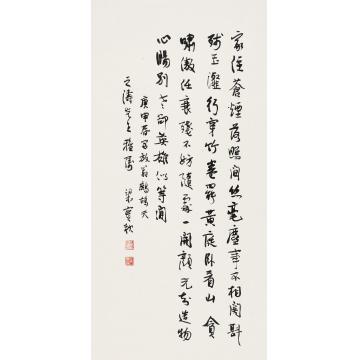 家住蒼煙落照間絲毫塵事不相關斟
殘玉瀣行穿竹卷罷黃庭卧看山貪
嘯傲任衰殘不妨隨處一開顏元知造物
心腸別老却英雄似等閒
庚申春寫放翁鷓鴣天
之濤先生雅屬 梁實秋